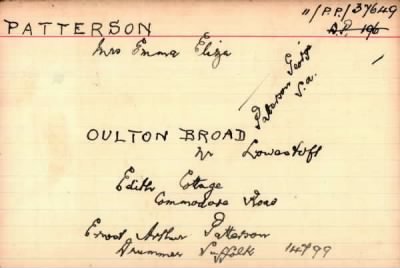 11/P.P./37649
D.P. 196
PATTERSON
Mrs Emma Eliza
Patterson George
S.a.
OULTON BROAD
Nr Lowestoft
Edith Cottage
Commodore Road
Ernest Arthur Patterson
Drummer Suffolk 14799